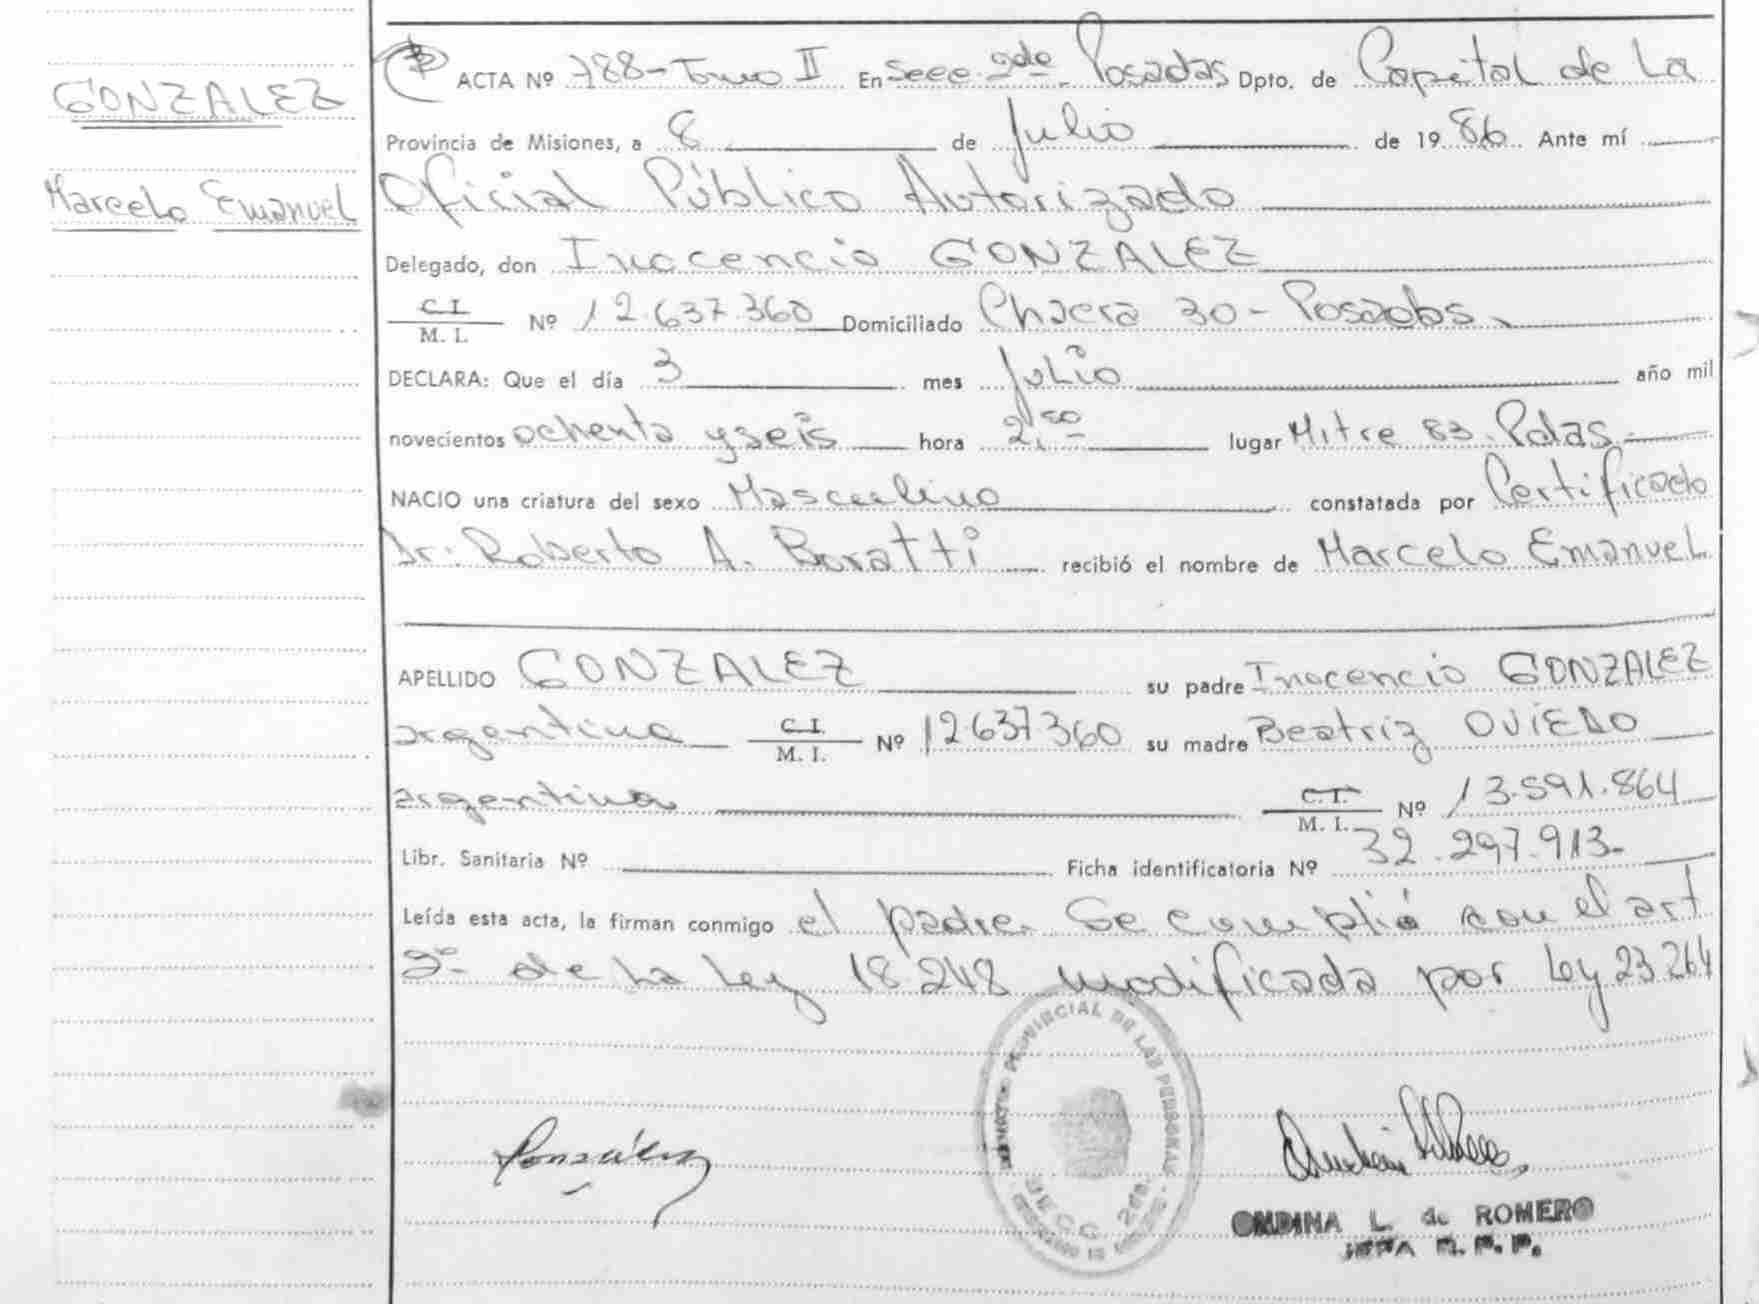 GONZALEZ
Marcelo Emanuel
ACTA Nº 788-Tomo II En Secc. 2da Posadas Dpto. de Capital de La
Provincia de Misiones, a 8 de Julio de 1986 Ante mí
Oficial Público Autorizado
Delegado, don Inocencio GONZALEZ
C.I.
M. I. Nº 12.637.360 Domiciliado Chacra 30 - Posadas
DECLARA: Que el día 3 mes Julio año mil
novecientos ochenta y seis hora 2,50 lugar Mitre 83. Pdas.
NACIO una criatura del sexo Masculino constatada por Certificado
Dr: Roberto A. Boratti recibió el nombre de Marcelo Emanuel
APELLIDO GONZALEZ su padre Inocencio GONZALEZ
argentino C.I. M. I. Nº 12637360 su madre Beatriz OVIEDO
argentina C.I. M. I. Nº 13.591.864
Libr. Sanitaria Nº Ficha identificatoria Nº 32.297.913-
Leída esta acta, la firman conmigo el padre. Se cumplió con el art
2º de la Ley 18248 modificada por Ley 23.264
PROVINCIAL DE LAS PERSONAS
González
ONDINA L. de ROMERO
JEFA R. P. P.